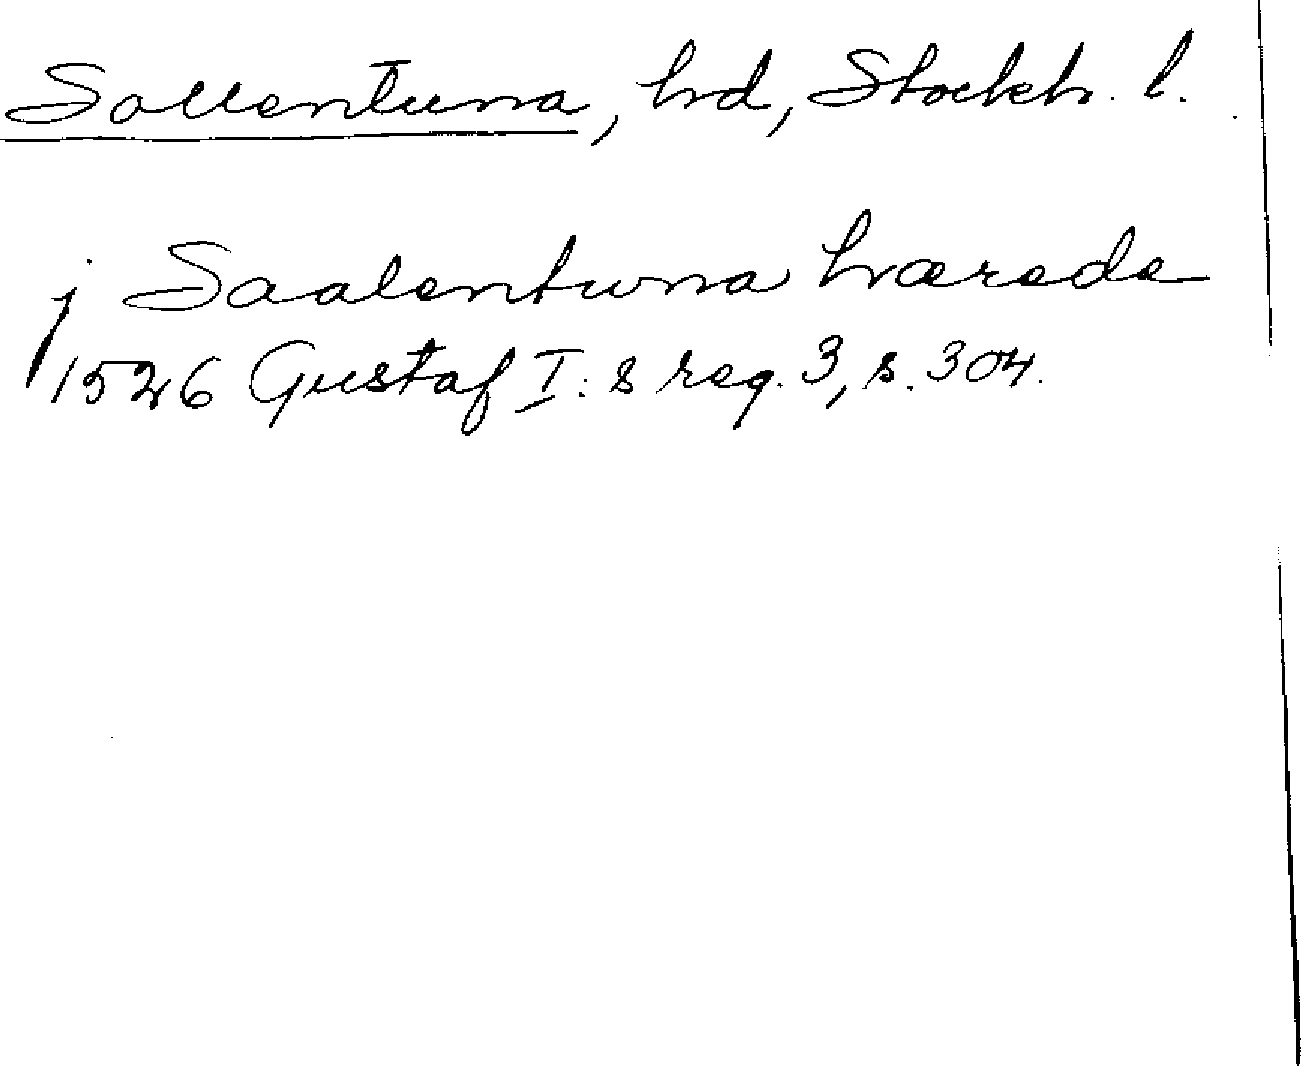 Sollentuna, hd, Stockh. l.
j Saalentwna hærede
1526 Gustaf I:s reg. 3, s. 304.